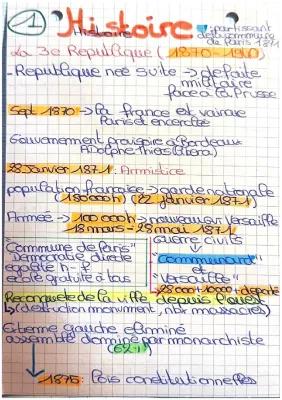 1
Histoire
Histoire
: partissant
de la commune
de Paris 1871
La 3e Republique (1870-1940)
- Republique neé suite → defaite
militaire
face a la Prusse
Sept 1870 → la france est vaincue
Paris est encerclée
Gouvernement provisoire a Bordeaux
Adolphe Thiers
28 Janvier 1871 : Armistice
population française → garde nationale
(180 000h) (22 janvier 1871)
Armée → 100 000h → nouveau sur Versaille
18 mars - 28 mai 1871
Guerre civils
"Commune de Paris"
Democratie directe
egalité h-f
ecole gratuite a tous
"Communard"
et
"Versaille"
+10000+ deporté
Reconquete de la ville depuis l'ouest
↳ (destruction monument, nbr massacres)
Extreme gauche eliminé
assemblé dominé par monarchiste
1875 : Lois constitutionnelles